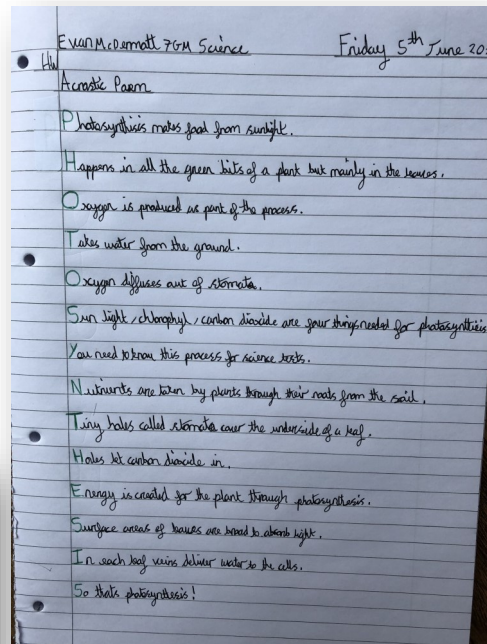 Evan McDermatt 7GM Science Friday 5th June 20
HW
Acrostic Paem
Photosynthisis makes food from sunlight.
Happens in all the green bits of a plant but mainly in the leaves.
Oxygen is produced as part of the process.
Takes water from the ground.
Oxygen diffuses out of stomata.
Sun light, chlorophyl, carbon dioxide are four things needed for photosynthisis
You need to know this process for science tests.
Nutrients are taken by plants through their roots from the soil.
Tiny holes called stomata cover the underside of a leaf.
Holes let carbon dioxide in.
Energy is created for the plant through photosynthesis.
Surface areas of leaves are broad to absorb light.
In each leaf veins deliver water to the cells.
So thats photosynthesis!